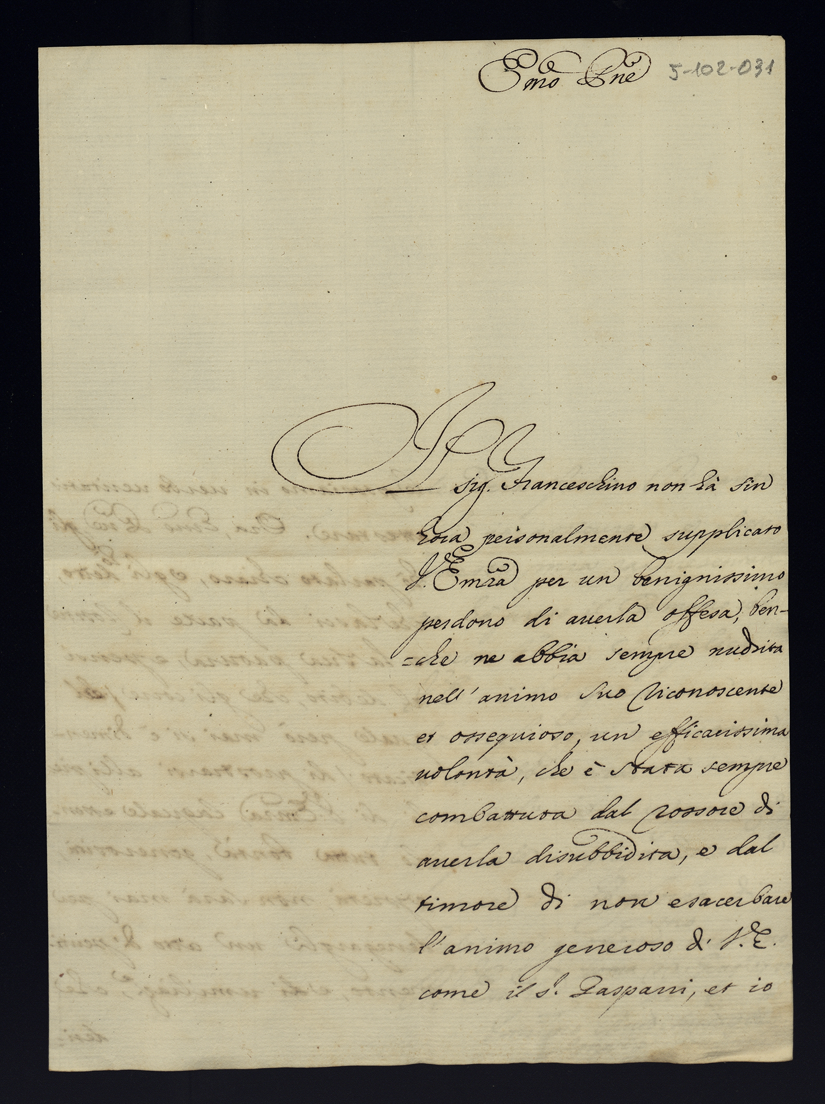 Emo Pne
5-102-031
Il Sig. Franceschino non hà sin
hora personalmente supplicato
V. Emza per un benignissimo
perdono di averla offesa, ben-
=che ne abbia sempre nudrita
nell'animo suo riconoscente
et ossequioso, un efficacissima
volontà, che è stata sempre
combattuta dal rossore di
averla disubbidita, e dal
timore di non esacerbare
l'animo generoso di V. E.
come il s.r Gasparri, et io